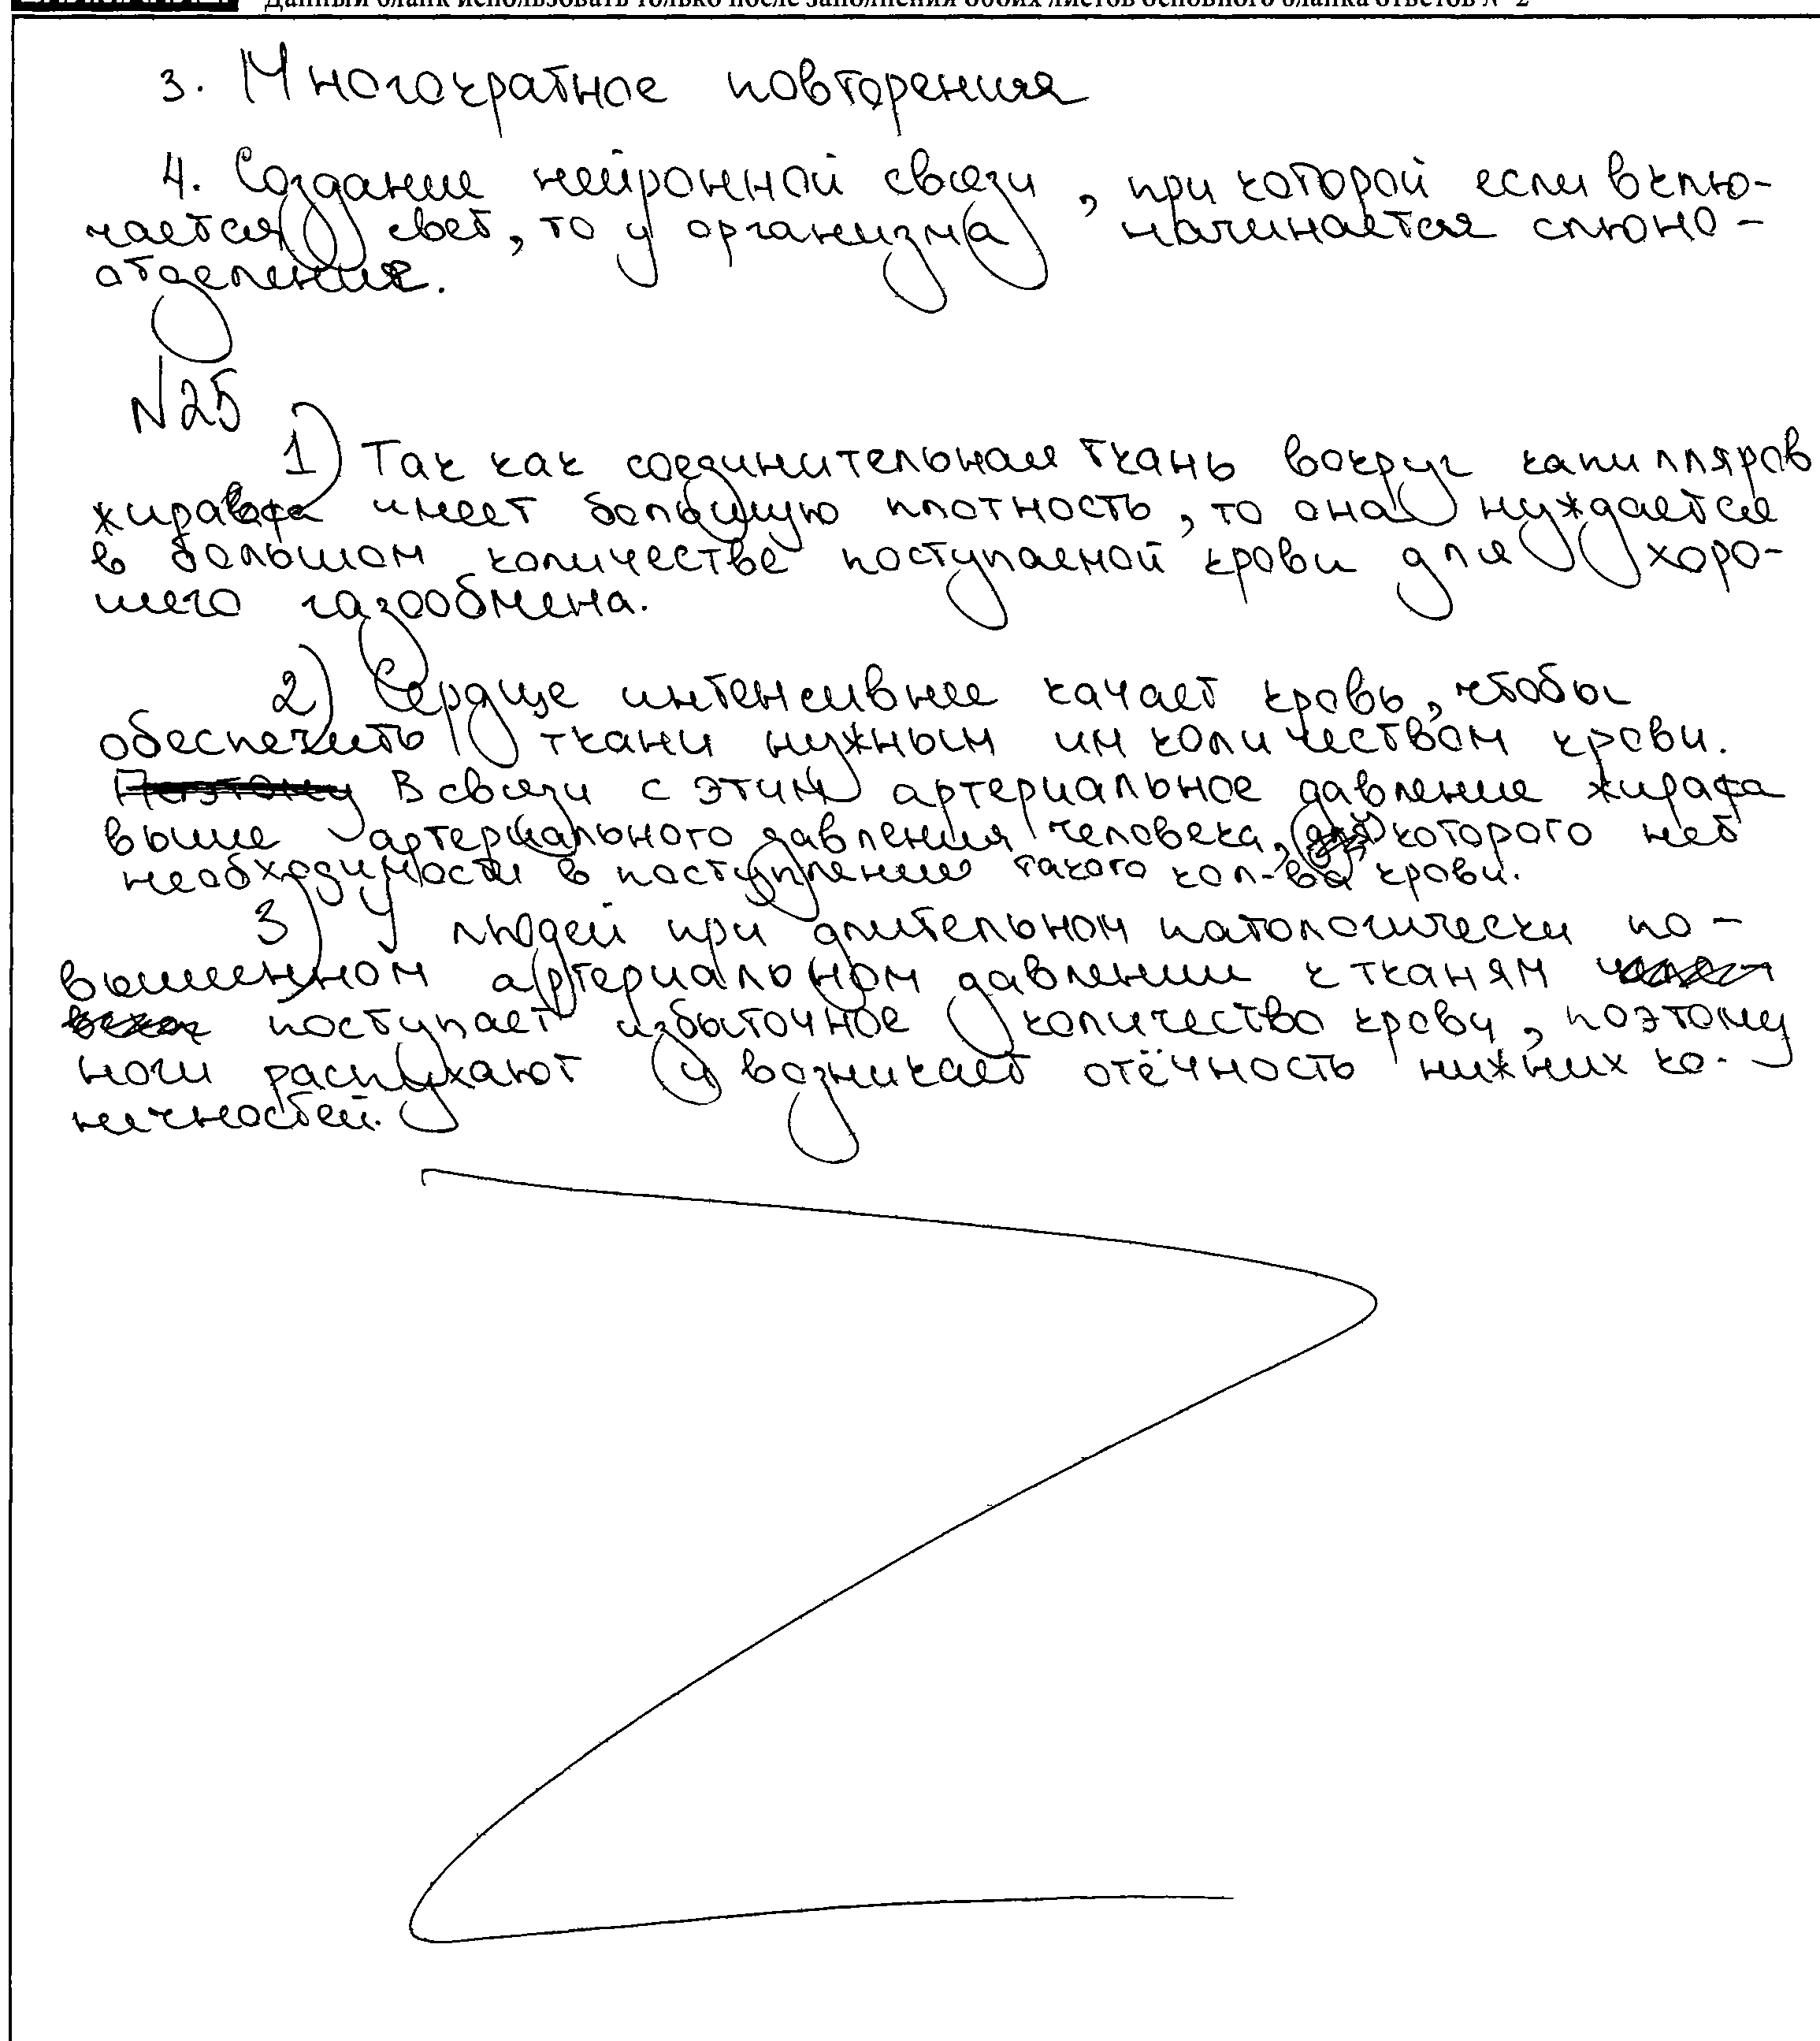 Данный бланк использовать только после заполнения обоих листов основного бланка ответов № 2
3. Многократное повторения
4. Создание нейронной связи, при которой если вклю-
чается свет, то у организма начинается слюно-
отделение.
N25
1) Так как соединительная ткань вокруг капилляров
жирафа имеет большую плотность, то она нуждается
в большом количестве поступаемой крови для хоро-
шего газообмена.
2) Сердце интенсивнее качает кровь, чтобы
обеспечить ткани нужным им количеством крови.
Поэтому В связи с этим артериальное давление жирафа
выше артериального давления человека, которого нет
необходимости в поступлении такого кол-ва крови.
3) У людей при длительном патологически по-
вышенном артериальном давлении к тканям
поступает избыточное количество крови, поэтому
ноги распухают и возникает отёчность нижних ко-
нечностей.